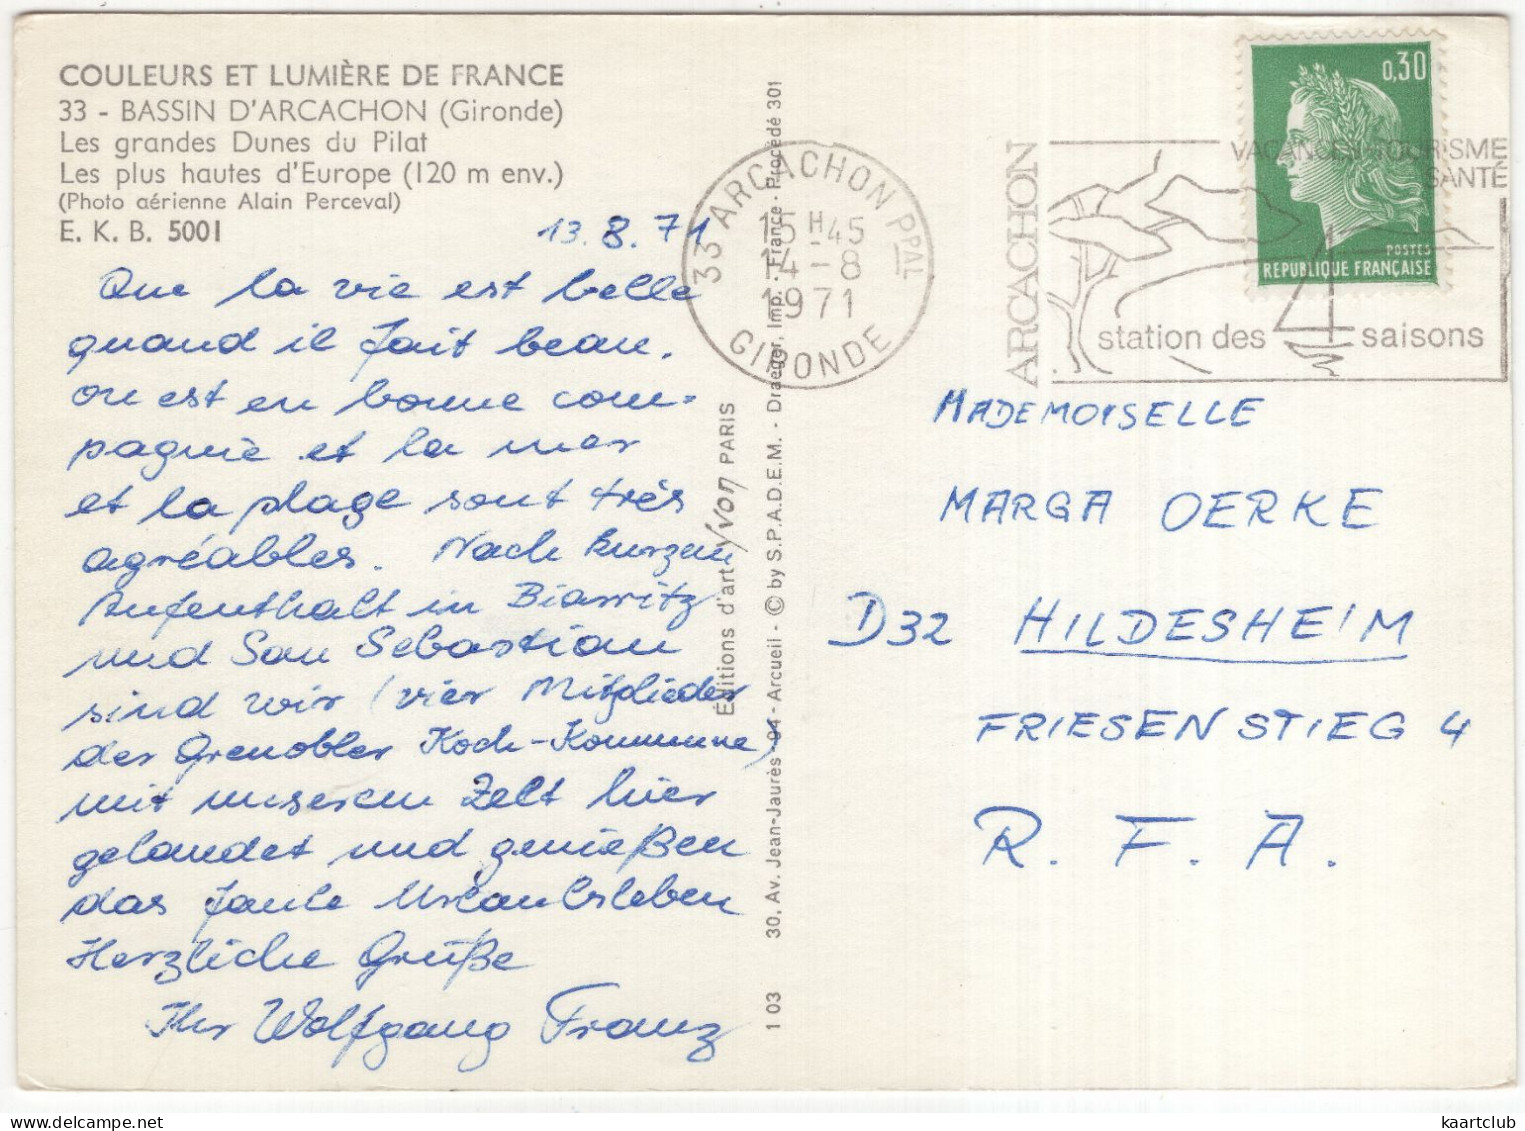 COULEURS ET LUMIÈRE DE FRANCE
33 - BASSIN D'ARCACHON (Gironde)
Les grandes Dunes du Pilat
Les plus hautes d'Europe (120 m env.)
(Photo aérienne Alain Perceval)
E. K. B. 5001
13.8.71
Que la vie est belle
quand il fait beau,
on est en bonne com-
pagnie et la mer
et la plage sont très
agréables. Nach kurzem
Aufenthalt in Biarritz
und San Sebastian
sind wir (vier Mitglieder
der Grenobler Koch-Kommune)
mit unserem Zelt hier
gelandet und genießen
das faule Urlaubsleben
Herzliche Grüße
Ihr Wolfgang Franz
Éditions d'art Yvon PARIS
1 03 30, Av. Jean-Jaurès - 94 - Arcueil - © by S.P.A.D.E.M. - Draeger, Imp. - France - Procédé 301
33 ARCACHON PPAL
15H45
14-8
1971
GIRONDE
ARCACHON
VACANCES TOURISME
SANTÉ
station des 4 saisons
0,30
POSTES
RÉPUBLIQUE FRANÇAISE
MADEMOISELLE
MARGA OERKE
D32 HILDESHEIM
FRIESENSTIEG 4
R. F. A.
kaartclub